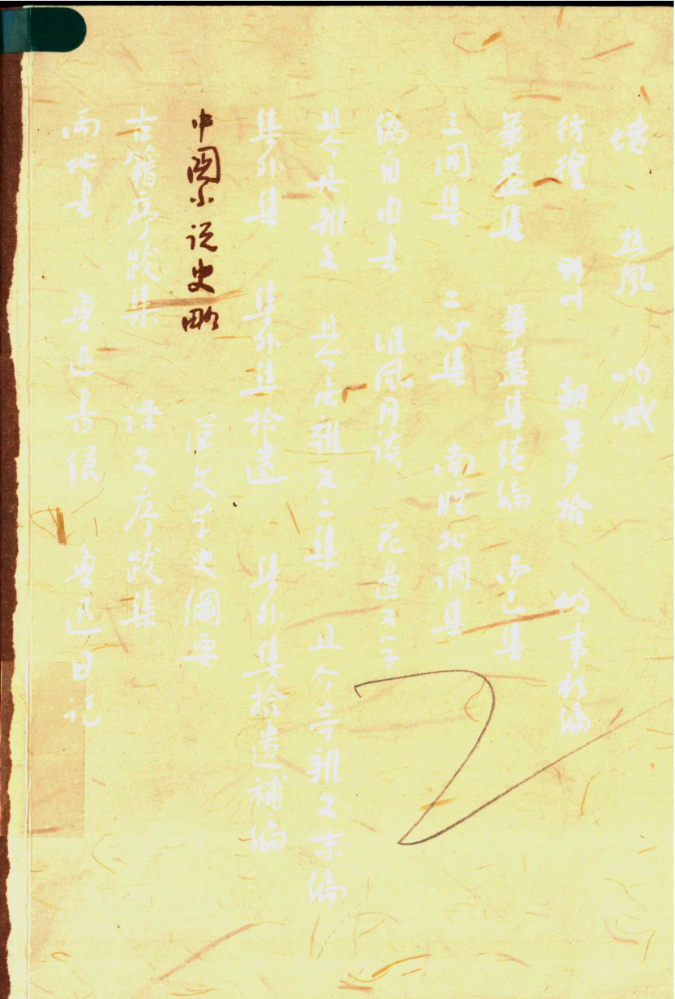 坟 热风 呐喊
彷徨 野草 朝華夕拾 故事新编
華蓋集 華蓋集续编 而已集
三闲集 二心集 南腔北调集
偽自由书 准风月谈 花边文学
且介亭雜文 且介亭雜文二集 且介亭雜文末编
集外集 集外集拾遗 集外集拾遗補编
中国小说史略 漢文学史綱要
古籍序跋集 译文序跋集
两地书 魯迅书信 魯迅日记